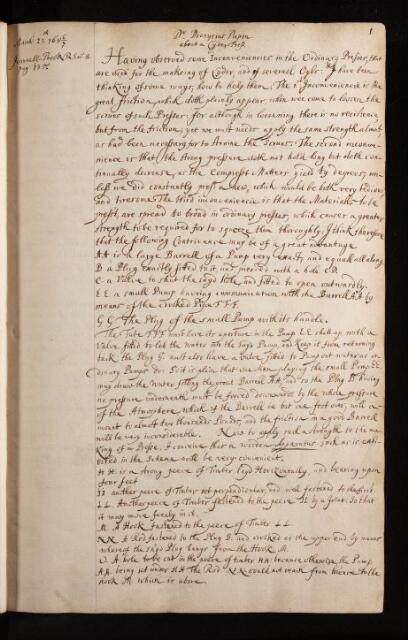 1
March 25 168 4/5
Journall Book R. Soc. 8
pag. 155.
Dr. Dionysius Papin
about a Cyder Press
Having observed some Inconveniencies in the Ordinary Presses, that
are used for the makeing of Cyder, and of severall Oyls: I have been
thinking of some ways, how to help them. The 1st Inconveniencie is the
great friction, which doth plainly appear, when wee come to loosen the
screws of such Presses: for although in loosening there is no resistence
but from the friction, yet we must needs apply the same strength almost
as had been necessary for to straine the Screws. The second inconve-
nience is that the strong pressure doth not hold long but doth con-
tinually decrease, as the Comprest Matters yield by degrees, un-
less we did constantly press anew, which would be both very tedious
and tiresome. The third inconveniencie is that the Materials to be
prest, are spread too broad in ordinary presses, which causes a greater
strength to be required for to squeeze them thoroughly, I think therefore
that the following Contrivance may be of a great advantage
AA is a large Barrell of a Pump very exactly and equall all along
B a Plug exactly fitted to it and pierced with a hole
C a Valve to shut the sayd hole, and fitted to open outwardly.
EE a small Pump having communication with the Barrell AA by
means of the crooked Pipe FFF.
GG The Plug of the small Pump with its handle.
The Pipe FFF must have its aperture in the Pump EE shutt up with a
Valve fitted to let the Water into the sayd Pump, and keep it from returning
back, the Plug G must also have a Valve fitted to Pump out water as or-
dinary Pumps do: So it is plain that one man playing the small Pump EE
may draw the Water filling the great Barrell AA; and so the Plug B having
no pressure underneath must be forced downwards by the whole pressure
of the Atmosphere, which if the Barrell be but one foot over, will a-
mount to almost two thousand Pounds, and the friction in a good Barrell
will be very inconsiderable. Now to apply such a strength to the ma-
king of a Presse, I conceive that a wooden Apparatus such as is exhi-
bited in the Scheme will be very convenient.
HH is a strong peece of Timber layd Horizontally, and bearing upon
four feet
II another peece of Timber set perpendicular, and well fastened to the first.
LL Another peece of Timber fastened to the peece II by a joint, so that
it may move freely in it.
M. A Hook fastened to the peece of Timber LL
NN A Rod fastened to the Plug B, and crooked at the upper end by means
whereof the sayd Plug hangs from the Hook M.
O A hole to be cut in the peece of timber HH because otherwise the Pump
AA being set under HH the Rod NN could not reach from thence to the
hook M which is above.